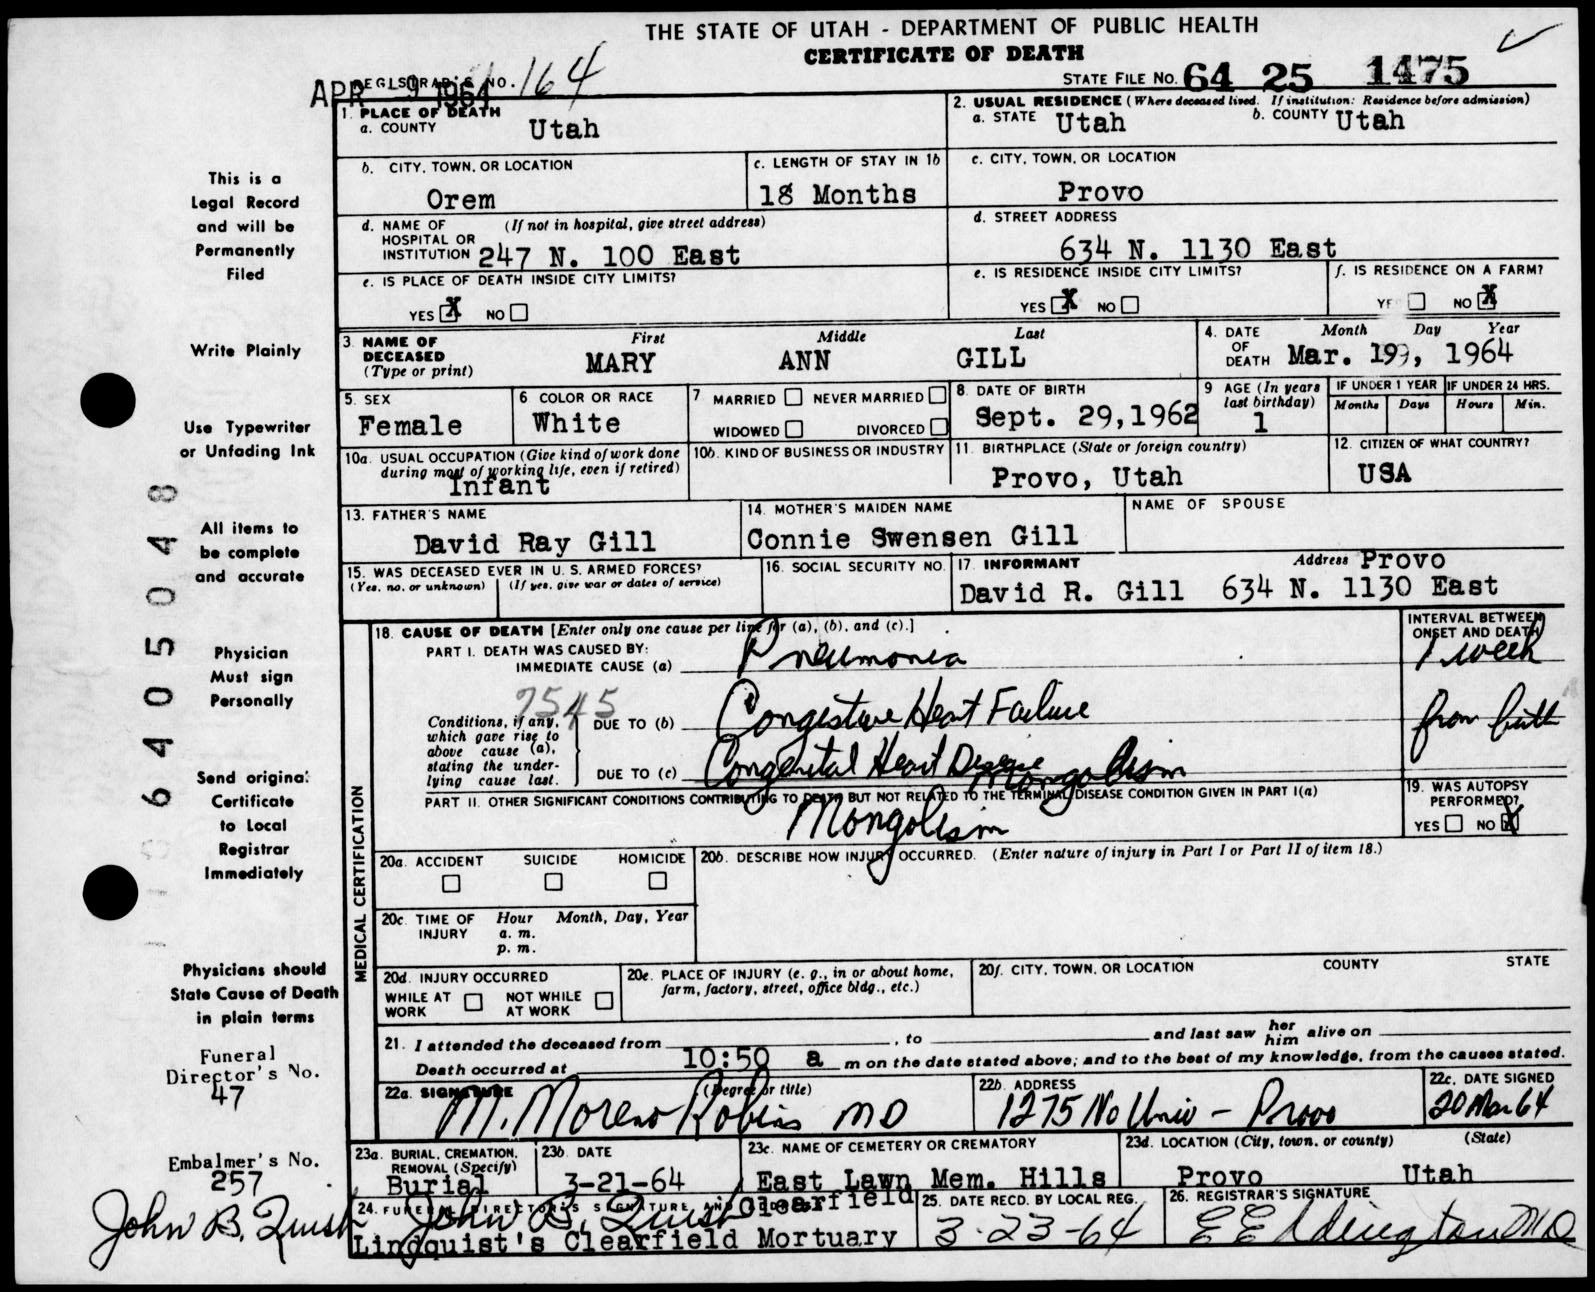 THE STATE OF UTAH - DEPARTMENT OF PUBLIC HEALTH
CERTIFICATE OF DEATH
REGISTRAR'S NO. 164
APR - 9 1964
STATE FILE NO. 64 25 1475
1. PLACE OF DEATH
a. COUNTY Utah
2. USUAL RESIDENCE (Where deceased lived. If institution: Residence before admission)
a. STATE Utah b. COUNTY Utah
b. CITY, TOWN, OR LOCATION
Orem
c. LENGTH OF STAY IN 1b
18 Months
c. CITY, TOWN, OR LOCATION
Provo
d. NAME OF HOSPITAL OR INSTITUTION (If not in hospital, give street address)
247 N. 100 East
d. STREET ADDRESS
634 N. 1130 East
e. IS PLACE OF DEATH INSIDE CITY LIMITS?
YES X NO
e. IS RESIDENCE INSIDE CITY LIMITS?
YES X NO
f. IS RESIDENCE ON A FARM?
YE NO X
3. NAME OF DECEASED (Type or print)
First Middle Last
MARY ANN GILL
4. DATE OF DEATH Month Day Year
Mar. 19, 1964
5. SEX
Female
6 COLOR OR RACE
White
7 MARRIED NEVER MARRIED
WIDOWED DIVORCED
8. DATE OF BIRTH
Sept. 29,1962
9 AGE (In years last birthday)
1
IF UNDER 1 YEAR
Months Days
IF UNDER 24 HRS.
Hours Min.
10a. USUAL OCCUPATION (Give kind of work done during most of working life, even if retired)
Infant
10b. KIND OF BUSINESS OR INDUSTRY
11. BIRTHPLACE (State or foreign country)
Provo, Utah
12. CITIZEN OF WHAT COUNTRY?
USA
13. FATHER'S NAME
David Ray Gill
14. MOTHER'S MAIDEN NAME
Connie Swensen Gill
NAME OF SPOUSE
15. WAS DECEASED EVER IN U. S. ARMED FORCES?
(Yes, no, or unknown) (If yes, give war or dates of service)
16. SOCIAL SECURITY NO.
17. INFORMANT Address Provo
David R. Gill 634 N. 1130 East
MEDICAL CERTIFICATION
18. CAUSE OF DEATH [Enter only one cause per line for (a), (b), and (c).]
PART I. DEATH WAS CAUSED BY:
IMMEDIATE CAUSE (a) Pneumonia
INTERVAL BETWEEN ONSET AND DEATH
1 week
7545
Conditions, if any, which gave rise to above cause (a), stating the underlying cause last.
DUE TO (b) Congestive Heart Failure
from birth
DUE TO (c) Congenital Heart Disease Mongolism
PART II. OTHER SIGNIFICANT CONDITIONS CONTRIBUTING TO DEATH BUT NOT RELATED TO THE TERMINAL DISEASE CONDITION GIVEN IN PART I(a)
Mongolism
19. WAS AUTOPSY PERFORMED?
YES NO X
20a. ACCIDENT SUICIDE HOMICIDE
20b. DESCRIBE HOW INJURY OCCURRED. (Enter nature of injury in Part I or Part II of item 18.)
20c. TIME OF INJURY Hour Month, Day, Year
a. m.
p. m.
20d. INJURY OCCURRED
WHILE AT WORK NOT WHILE AT WORK
20e. PLACE OF INJURY (e. g., in or about home, farm, factory, street, office bldg., etc.)
20f. CITY, TOWN, OR LOCATION COUNTY STATE
21. I attended the deceased from , to and last saw her him alive on
Death occurred at 10:50 a m on the date stated above; and to the best of my knowledge, from the causes stated.
22a. SIGNATURE (Degree or title)
M. Moreno Robins MD
22b. ADDRESS
1275 No Univ - Provo
22c. DATE SIGNED
20 Mar 64
23a. BURIAL, CREMATION, REMOVAL (Specify)
Burial
23b. DATE
3-21-64
23c. NAME OF CEMETERY OR CREMATORY
East Lawn Mem. Hills
23d. LOCATION (City, town, or county) (State)
Provo Utah
24. FUNERAL DIRECTOR'S SIGNATURE AND
John B. Quist Clearfield
Lindquist's Clearfield Mortuary
25. DATE RECD. BY LOCAL REG.
3-23-64
26. REGISTRAR'S SIGNATURE
E E Eddington MD
This is a
Legal Record
and will be
Permanently
Filed
Write Plainly
Use Typewriter
or Unfading Ink
All items to
be complete
and accurate
Physician
Must sign
Personally
Send original
Certificate
to Local
Registrar
Immediately
Physicians should
State Cause of Death
in plain terms
Funeral
Director's No.
47
Embalmer's No.
257
John B. Quist
064050 48